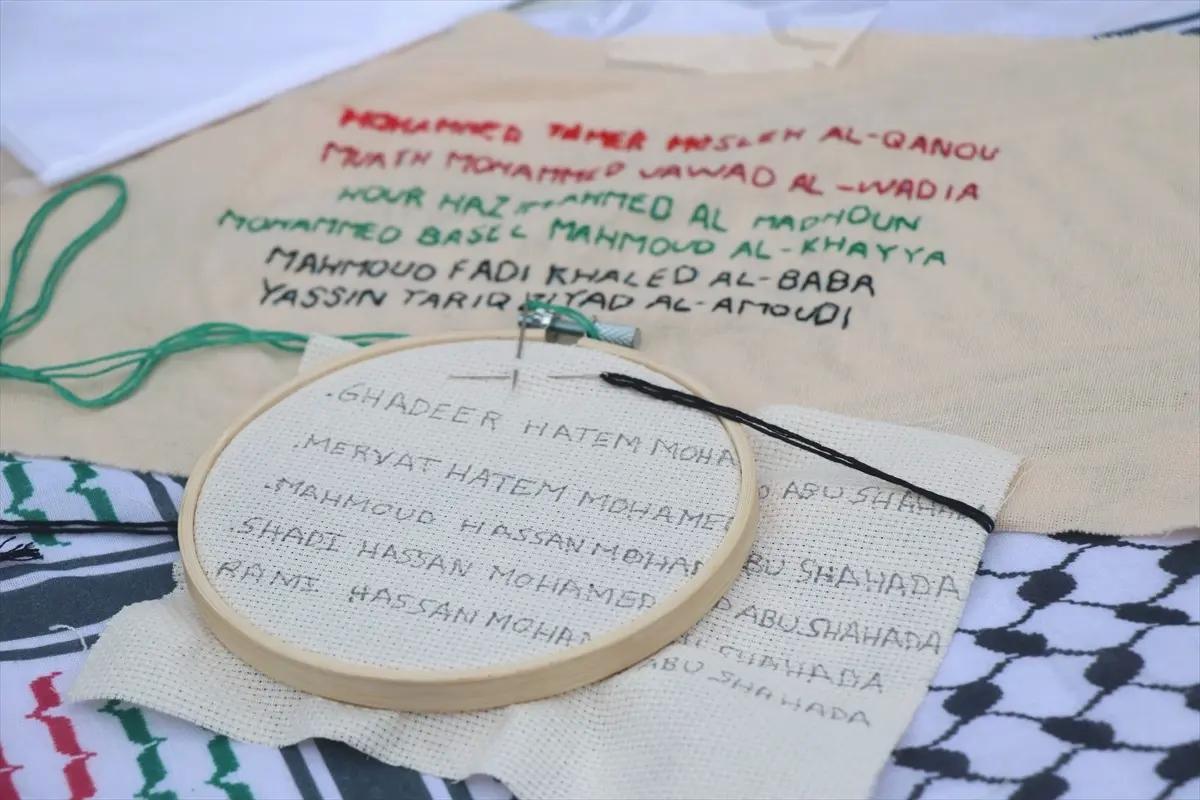 MOHAMMED TAMER MOSLEH AL-QANOU
MUATH MOHAMMED JAWAD AL-WADIA
HAZ AHMED AL MADHOUN
MOHAMMED BASEL MAHMOUD AL-KHAYYA
MAHMOUD FADI KHALED AL-BABA
YASSIN TARIQ ZIYAD AL-AMOUDI
.GHADEER HATEM MOHA D ABU SHAHADA
.MERVAT HATEM MOHAMED ABU SHAHADA
.MAHMOUD HASSAN MOHAM D ABU SHAHADA
.SHADI HASSAN MOHAMED SHAHADA
RAMI HASSAN MOHAM ABU SHAHADA